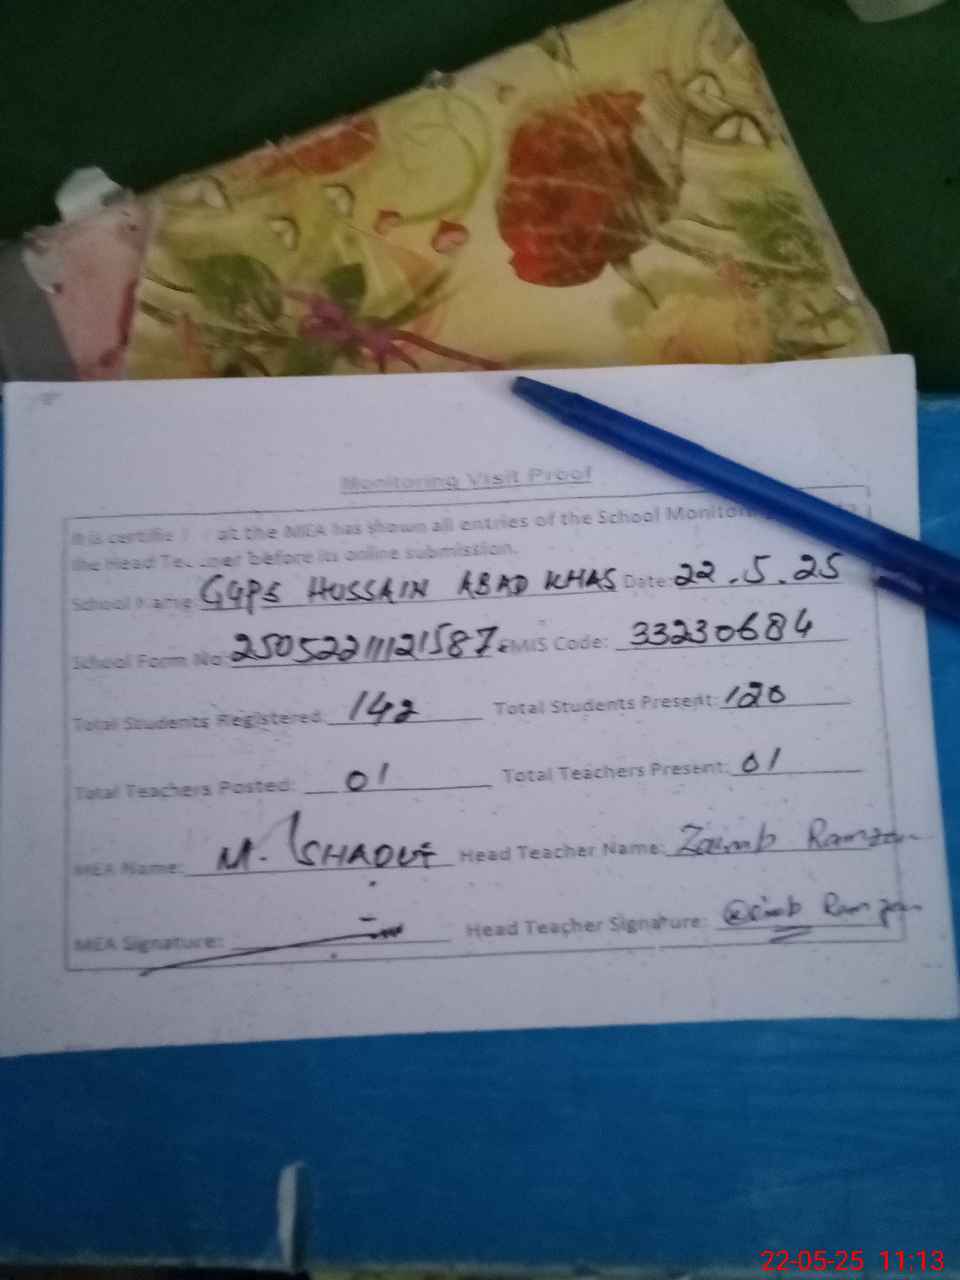 Monitoring Visit Proof
It is certifie at the MEA has shown all entries of the School Monitor
the Head Te her before its online submission.
School Name: GGPS HUSSAIN ABAD KHAS Date: 22.5.25
School Form No: EMIS Code: 33230684
Total Students Registered: 142 Total Students Present: 120
Total Teachers Posted: 01 Total Teachers Present: 01
MEA Name: M. Head Teacher Name: Ramzan
MEA Signature: Head Teacher Signature: Ramzan
22-05-25 11:13